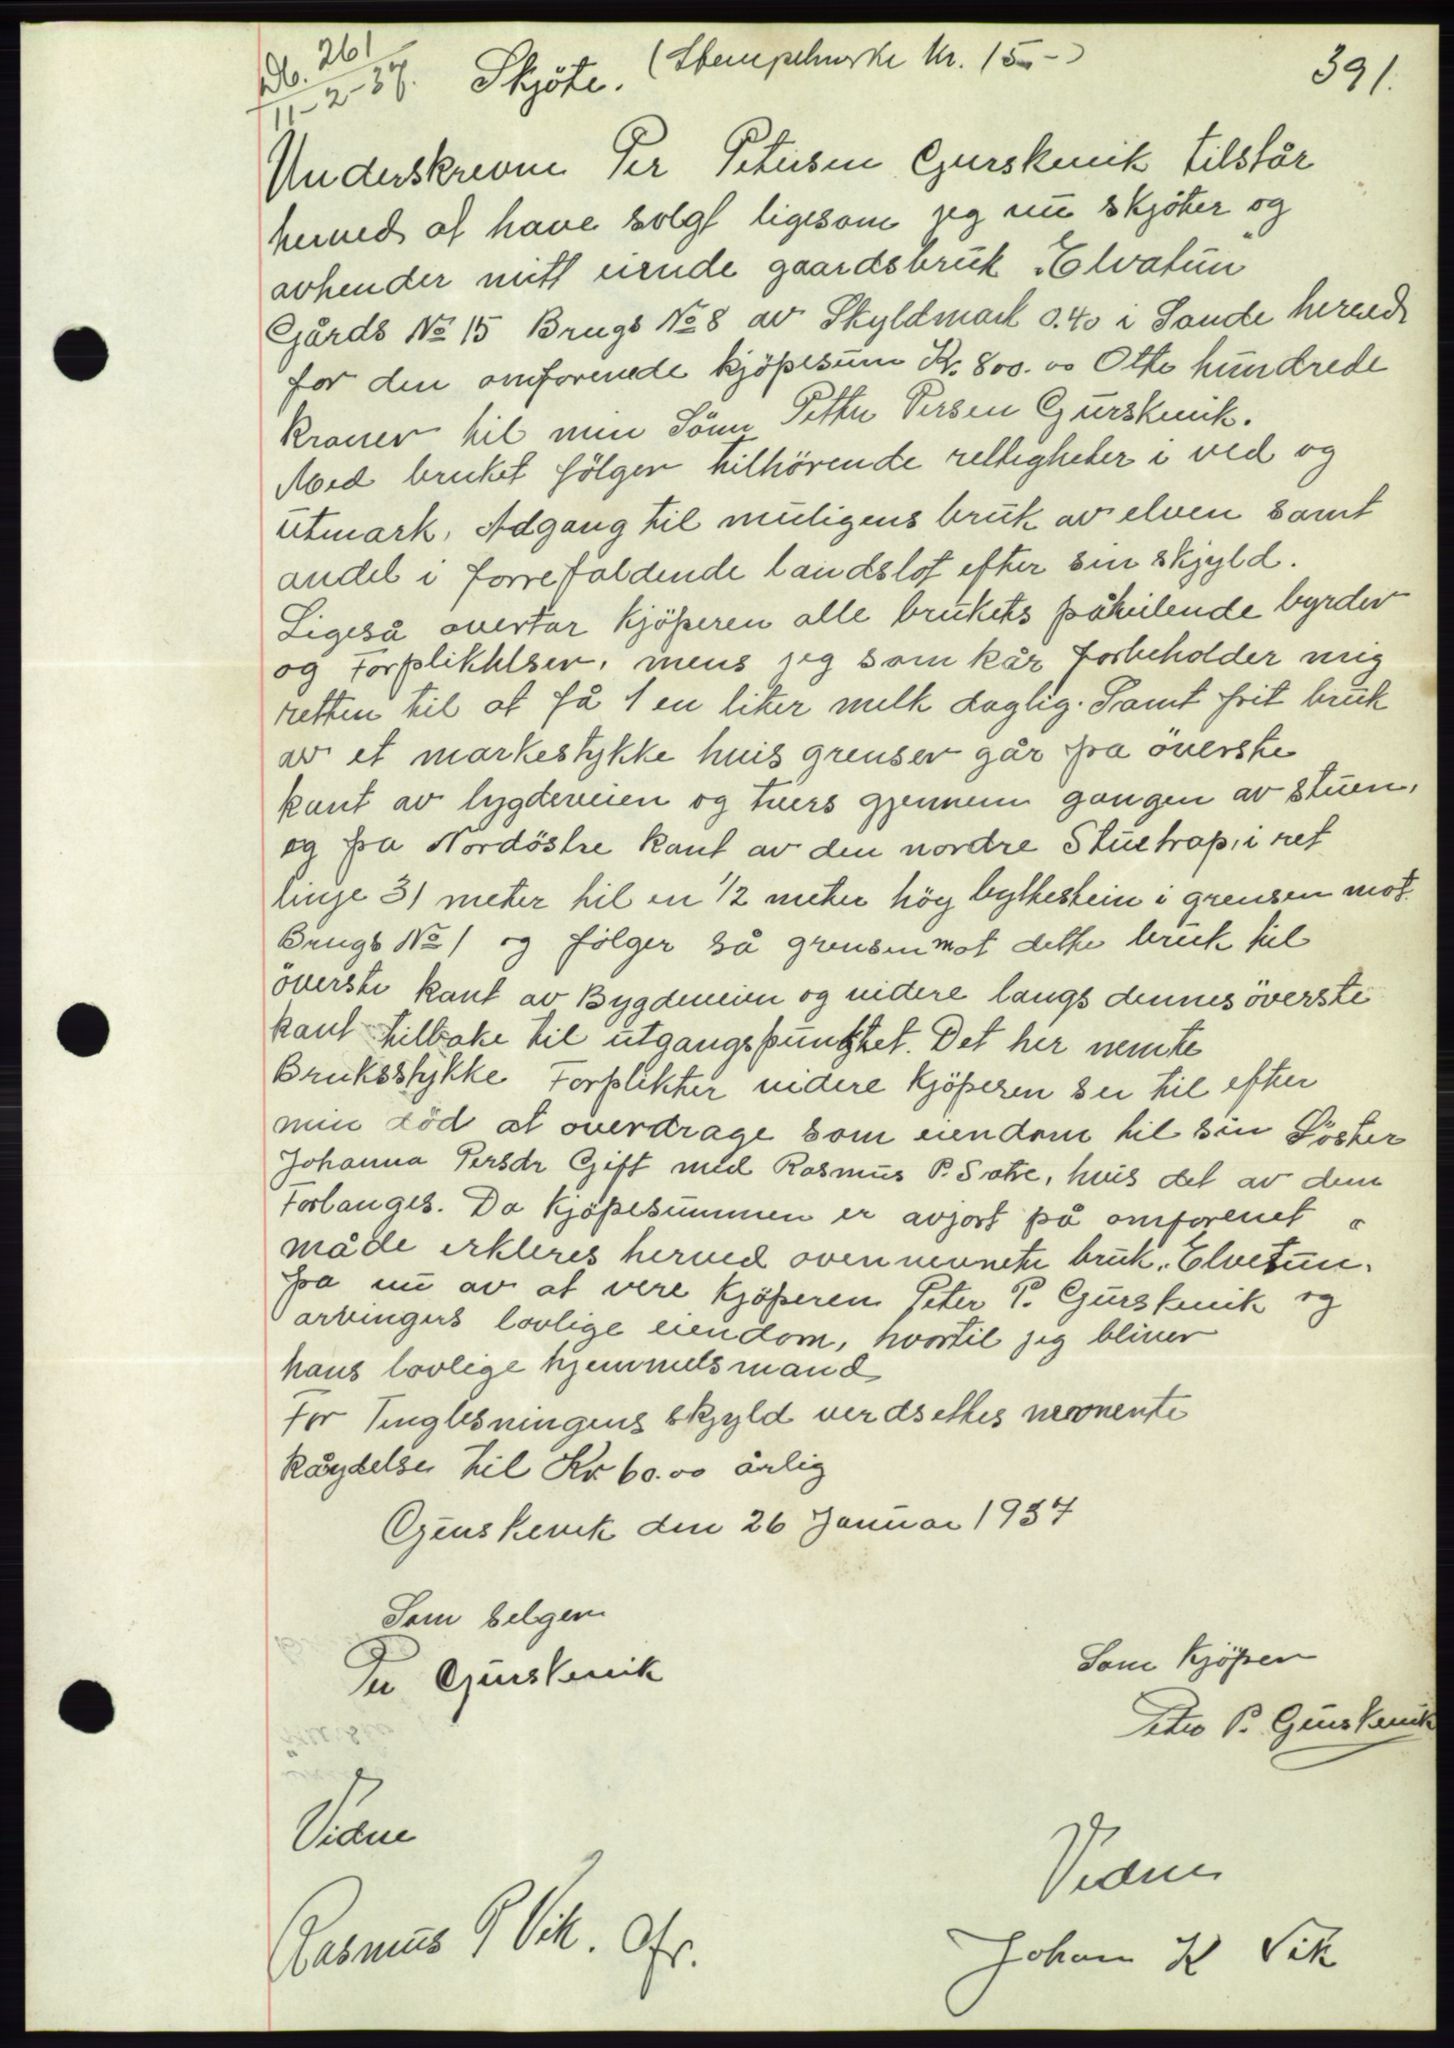 Db. 261
11-2-37.
Skjöte. (Stempelmerke kr. 15.-)
391.
Underskrevne Per Petersen Gjurskevik tilstår
herved at have solgt ligesom jeg nu skjöter og
avhender mitt eiende gaardsbruk "Elvatun"
Gårds No 15 Brugs No 8 av Skyldmark 0.40 i Sande herred
for den omforenede kjöpesum Kr. 800.00 Otte hundrede
kroner til min Sönn Petter Persen Gurskevik.
Med bruket fölger tilhörende rettigheter i ved og
utmark, Adgang til muligens bruk av elven samt
andel i forrefaldende landslot efter sin skjyld.
Ligeså overtar kjöperen alle brukets påheilende byrder
og Forpliktelser, mens jeg som kår forbeholder mig
retten til at få 1 en liter melk daglig. Samt frit bruk
av et markestykke hvis grenser går fra överste
kant av bygdeveien og tvers gjennem gangen av stuen,
og fra Nordöstre kant av den nordre Stuetrap, i ret
linje 31 meter til en 1/2 meter höy byttestein i grensen mot
Brugs No 1 og fölger så grensen mot dette bruk til
överste kant av Bygdeveien og videre langs dennes överste
kant tilbake til utgangspunktet. Det her nemte
Bruksstykke Forplikter videre kjöperen sei til efter
min död at overdrage som eiendom til sin Söster
Johanna Persdr Gift med Rasmus P. Satre, hvis det av dem
Forlanges. Da kjöpesummen er avjort på omforenet
måde erkleres herved ovennevnete bruk "Elvetun"
fra nu av at vere kjöperen Peter P. Gjurskevik og
arvingers lovlige eiendom, hvortil jeg bliver
hans lovlige hjemmelsmand
For Tinglesningens skjyld verdsettes nevnente
kårydelse til Kr 60.00 årlig
Gjurskevik den 26 Januar 1937
Som selger
Per Gjurskevik
Som kjöper
Peter P. Gjurskevik
Vidne
Rasmus P Vik.
Vidne
Johan K Vik